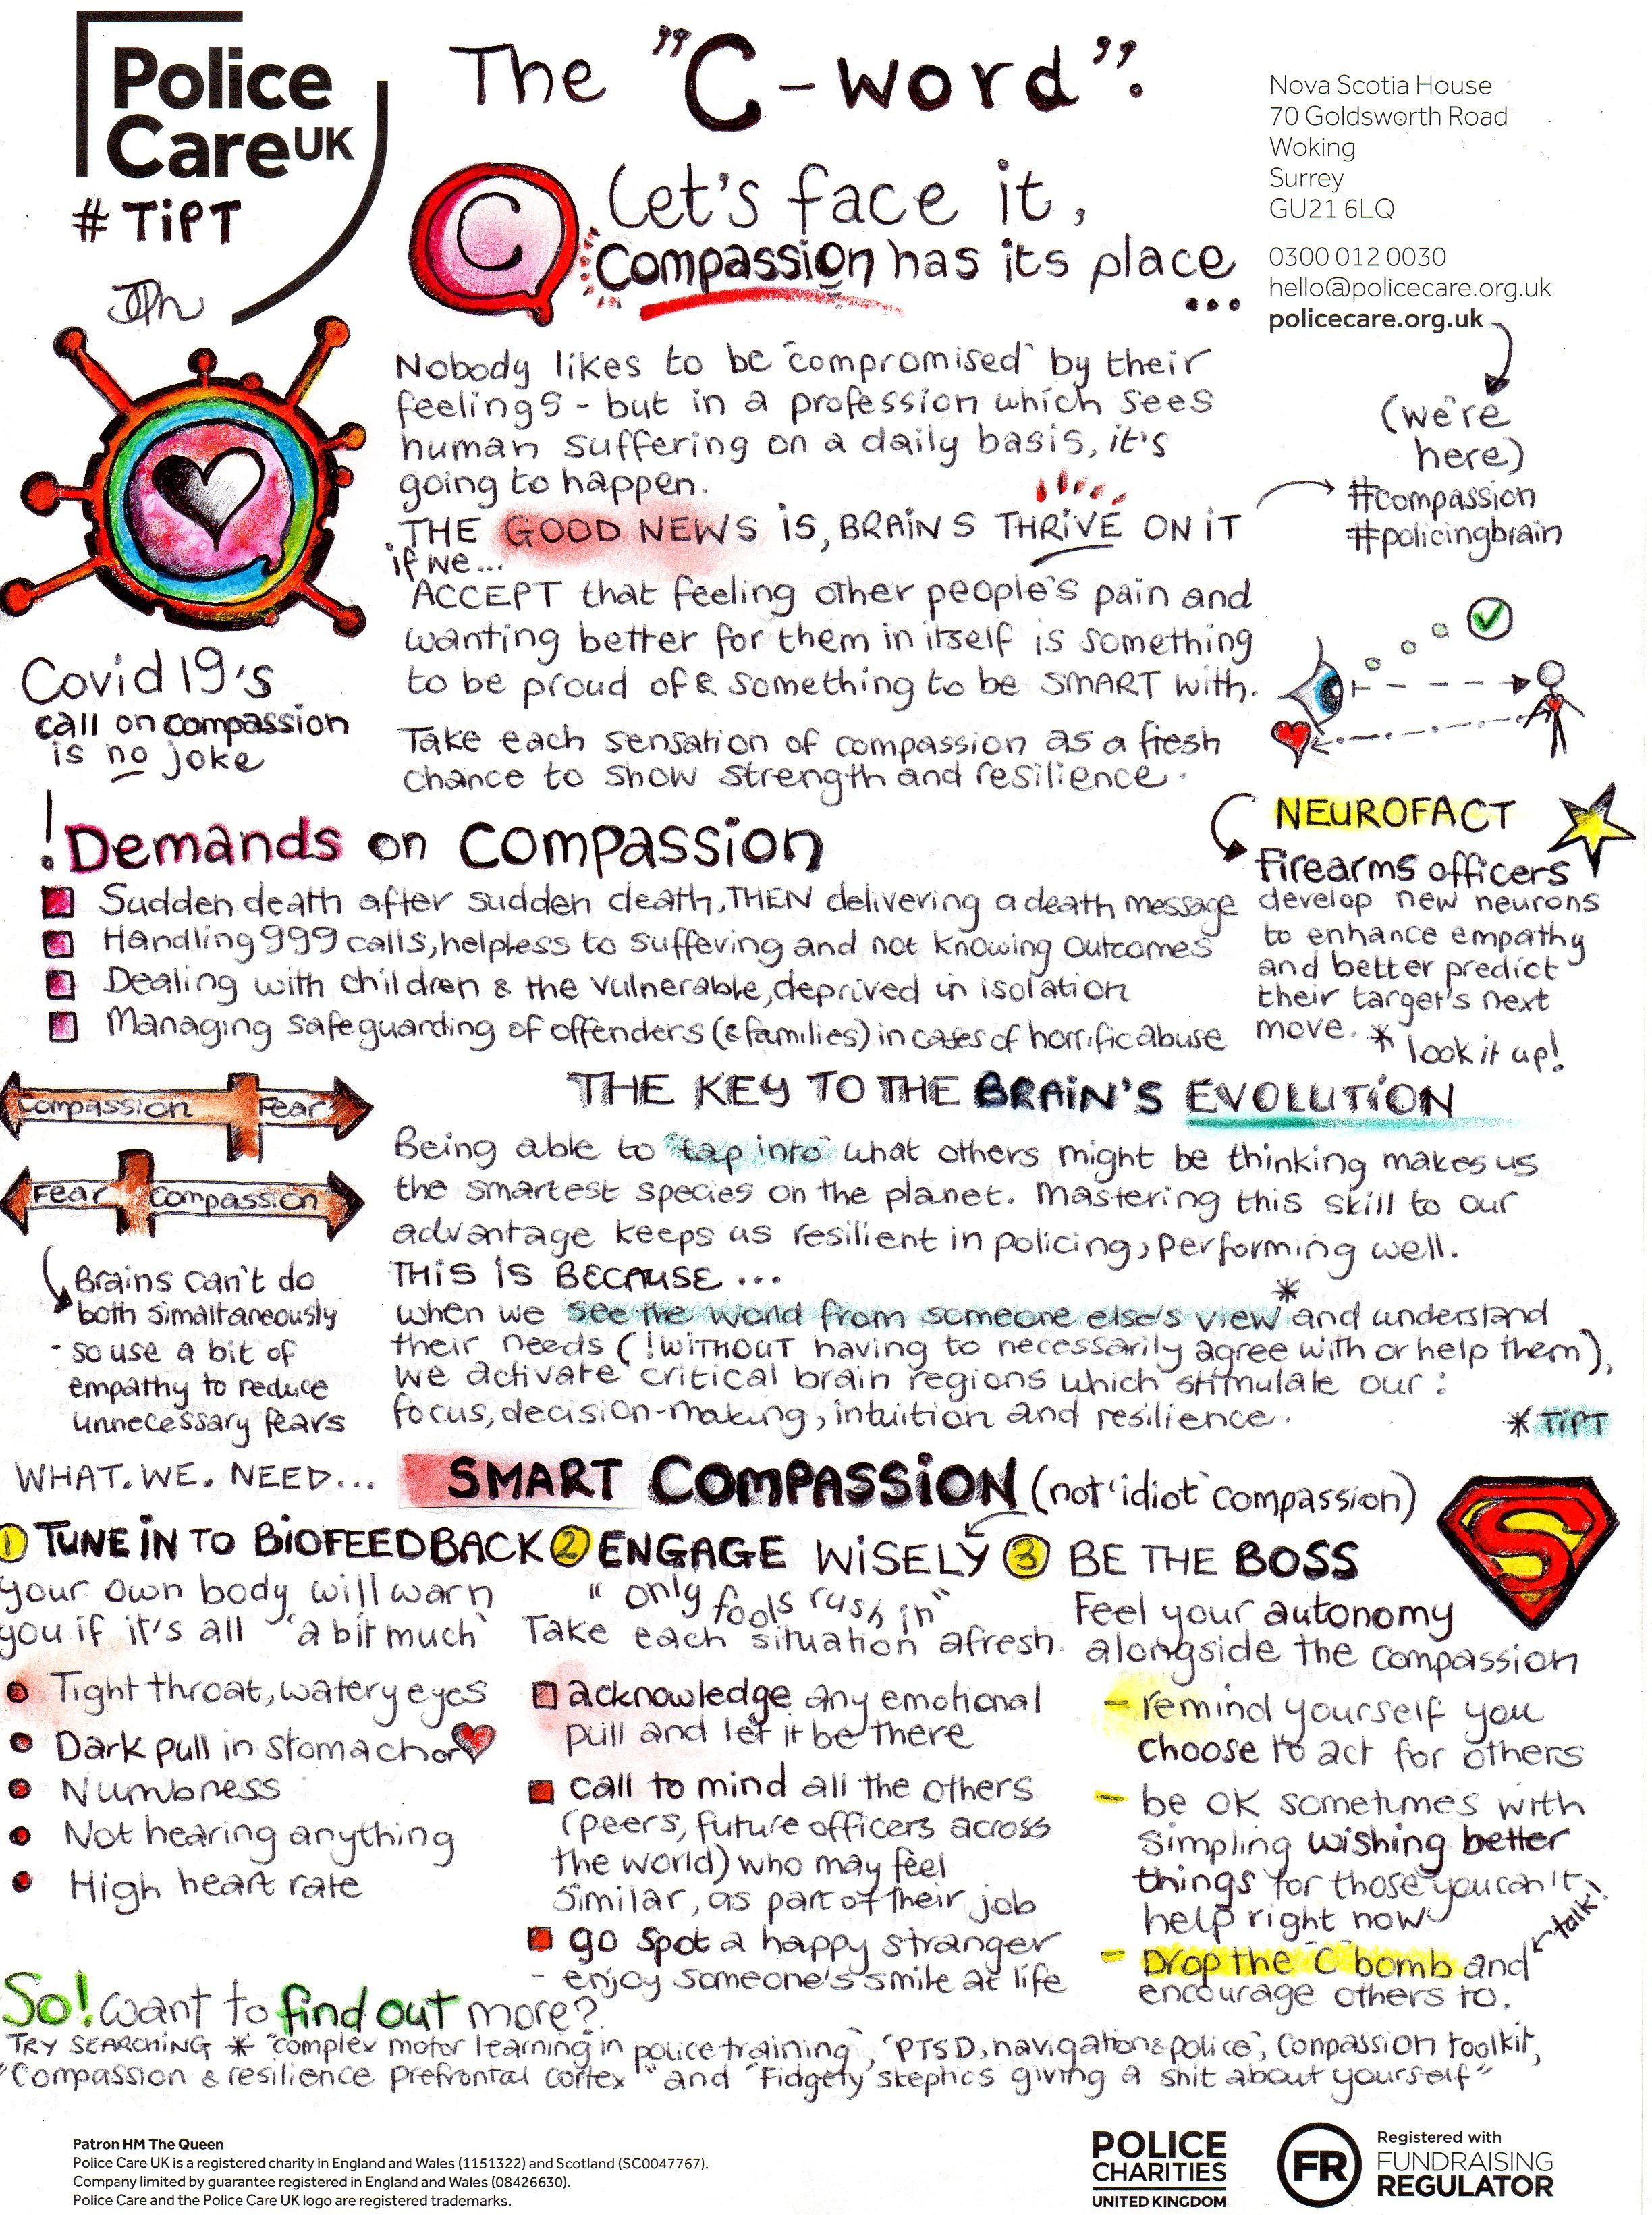 Police
CareUK
# TiPT
The "C-word".
Nova Scotia House
70 Goldsworth Road
Woking
Surrey
GU21 6LQ
0300 012 0030
hello@policecare.org.uk
policecare.org.uk
(we're
here)
#compassion
#policingbrain
C
Let's face it,
Compassion has its place
...
Nobody likes to be 'compromised' by their
feelings - but in a profession which sees
human suffering on a daily basis, it's
going to happen.
THE GOOD NEWS iS, BRAiNS THRiVE ON iT
if we...
ACCEPT that feeling other people's pain and
wanting better for them in itself is something
to be proud of & something to be SMART with.
Take each sensation of compassion as a fresh
chance to show strength and resilience.
Covid 19's
call on compassion
is no joke
NEUROFACT
Firearms officers
develop new neurons
to enhance empathy
and better predict
their target's next
move. * look it up!
! Demands on Compassion
Sudden death after sudden death, THEN delivering a death message
Handling 999 calls, helpless to suffering and not knowing outcomes
Dealing with children & the vulnerable, deprived in isolation
Managing safeguarding of offenders (& families) in cases of horrific abuse
Compassion Fear
Fear Compassion
Brains can't do
both simaltaneously
- so use a bit of
empathy to reduce
unnecessary fears
THE KEY TO THE BRAiN'S EVOLUTiON
Being able to 'tap into' what others might be thinking makes us
the smartest species on the planet. Mastering this skill to our
advantage keeps us resilient in policing, performing well.
THiS iS BECAUSE ...
when we see the world from someone else's view * and understand
their needs (!WiTHOUT having to necessarily agree with or help them),
we activate critical brain regions which stimulate our:
focus, decision-making, intuition and resilience.
* TiPT
WHAT. WE. NEED...
SMART COMPASSiON (not 'idiot' compassion)
S
1 TUNE iN TO BiOFEEDBACK
your own body will warn
you if it's all 'a bit much'
Tight throat, watery eyes
Dark pull in stomach or
Numbness
Not hearing anything
High heart rate
2 ENGAGE WiSELY
"only fools rush in"
Take each situation afresh.
acknowledge any emotional
pull and let it be there
call to mind all the others
(peers, future officers across
the world) who may feel
similar, as part of their job
go spot a happy stranger
- enjoy someone's smile at life
3 BE THE BOSS
Feel your autonomy
alongside the compassion
- remind yourself you
choose to act for others
- be OK sometimes with
simpling wishing better
things for those you can't
help right now
- Drop the 'C' bomb and
encourage others to.
talk!
So! want to find out more?
TRY SEARCHiNG * "complex motor learning in police training", 'PTSD, navigation & police', Compassion toolkit,
"Compassion & resilience prefrontal cortex" and "Fidgety skeptics giving a shit about yourself"
Patron HM The Queen
Police Care UK is a registered charity in England and Wales (1151322) and Scotland (SC0047767).
Company limited by guarantee registered in England and Wales (08426630).
Police Care and the Police Care UK logo are registered trademarks.
POLICE
CHARITIES
UNITED KINGDOM
FR
Registered with
FUNDRAISING
REGULATOR